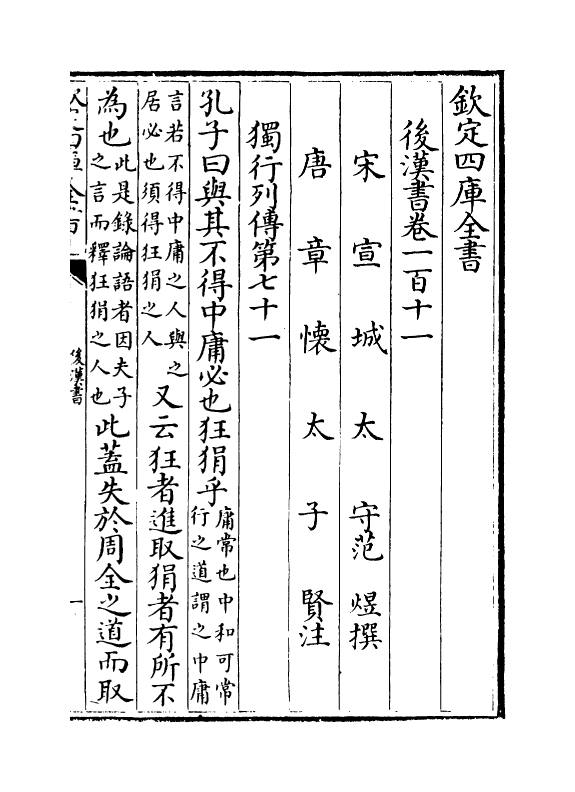 欽定四庫全書
後漢書卷一百十一
宋宣城太守范煜撰
唐章懷太子賢注
獨行列傳第七十一
孔子曰與其不得中庸必也狂狷乎庸常也中和可常行之道謂之中庸
言若不得中庸之人與之居必也須得狂狷之人又云狂者進取狷者有所不
為也此是錄論語者因夫子之言而釋狂狷之人也此蓋失於周全之道而取
後漢書
一